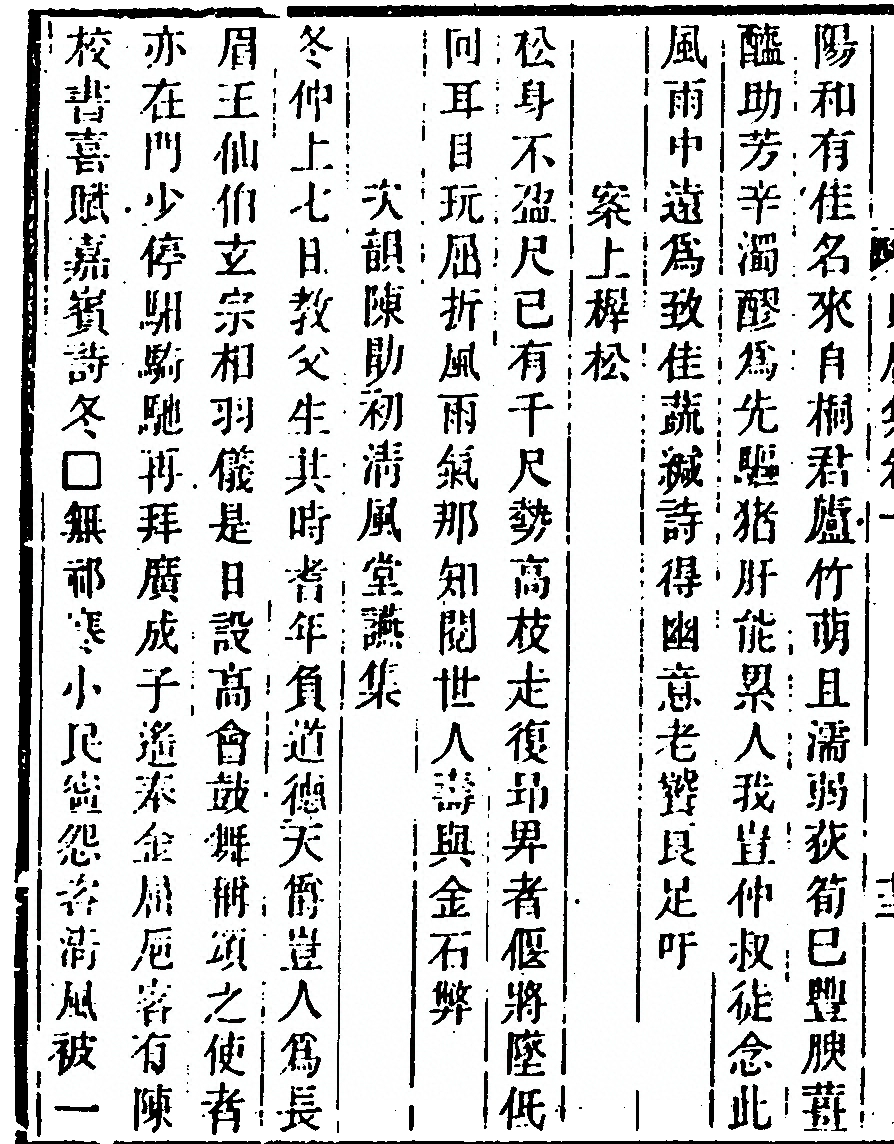 陽和有佳名來自桐君廬竹萌且濡弱荻筍已豐腴薑
醯助芳辛濁醪爲先驅猪肝能累人我豈仲叔徒念此
風雨中遠爲致佳蔬緘詩得幽意老饕良足吁
案上樨松
松身不盈尺已有千尺勢高枝走復昂畀者偃將墜低
回耳目玩屈折風雨氣那知閱世人壽與金石弊
次韻陳勛初淸風堂讌集
冬仲上七日教父生其時耆年負道德天爵豈人爲長
眉王仙伯玄宗相羽儀是日設高會鼓舞稱頌之使者
亦在門少停駟騎馳再拜廣成子遙奉金屈卮客有陳
校書喜賦嘉賓詩冬□無祁寒小民蚩怨咨淸風被一